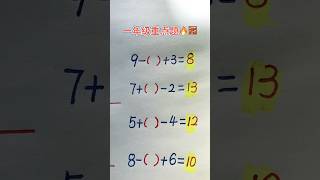 一年级重点题🔥💯
9-( )+3=8
7+( )-2=13
5+( )-4=12
8-( )+6=10